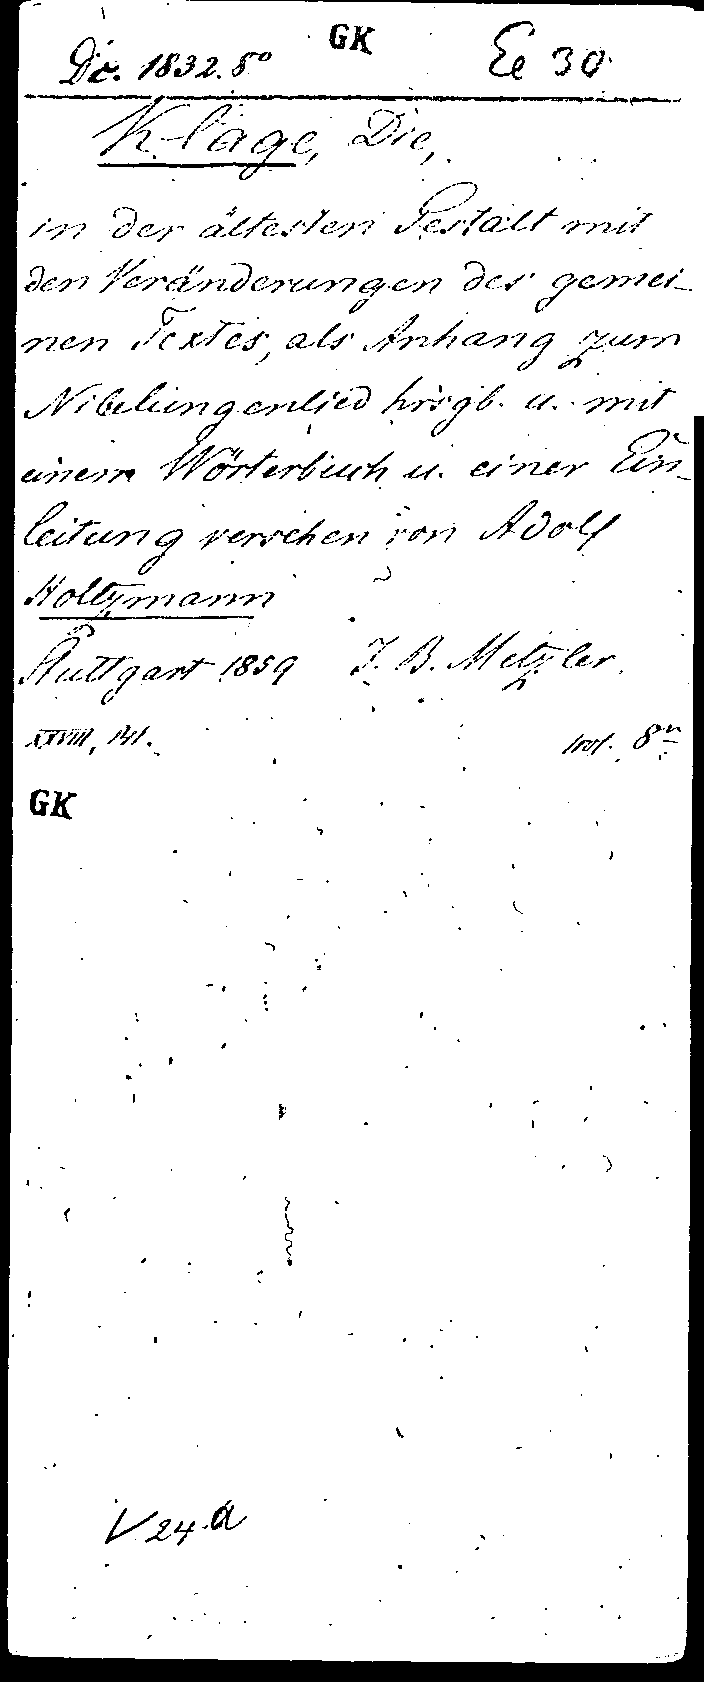 Dc. 1832. 8° GK Ee 30
Klage, Die,
in der ältesten Gestalt mit
den Veränderungen des gemei-
nen Textes, als Anhang zum
Nibelungenlied hrsgb. u. mit
einem Wörterbuch u. einer Ein-
leitung versehen von Adolf
Holtzmann
Stuttgart 1859 J. B. Metzler.
XXVIII, 141. 1 vol. 8°
GK
V 24 a